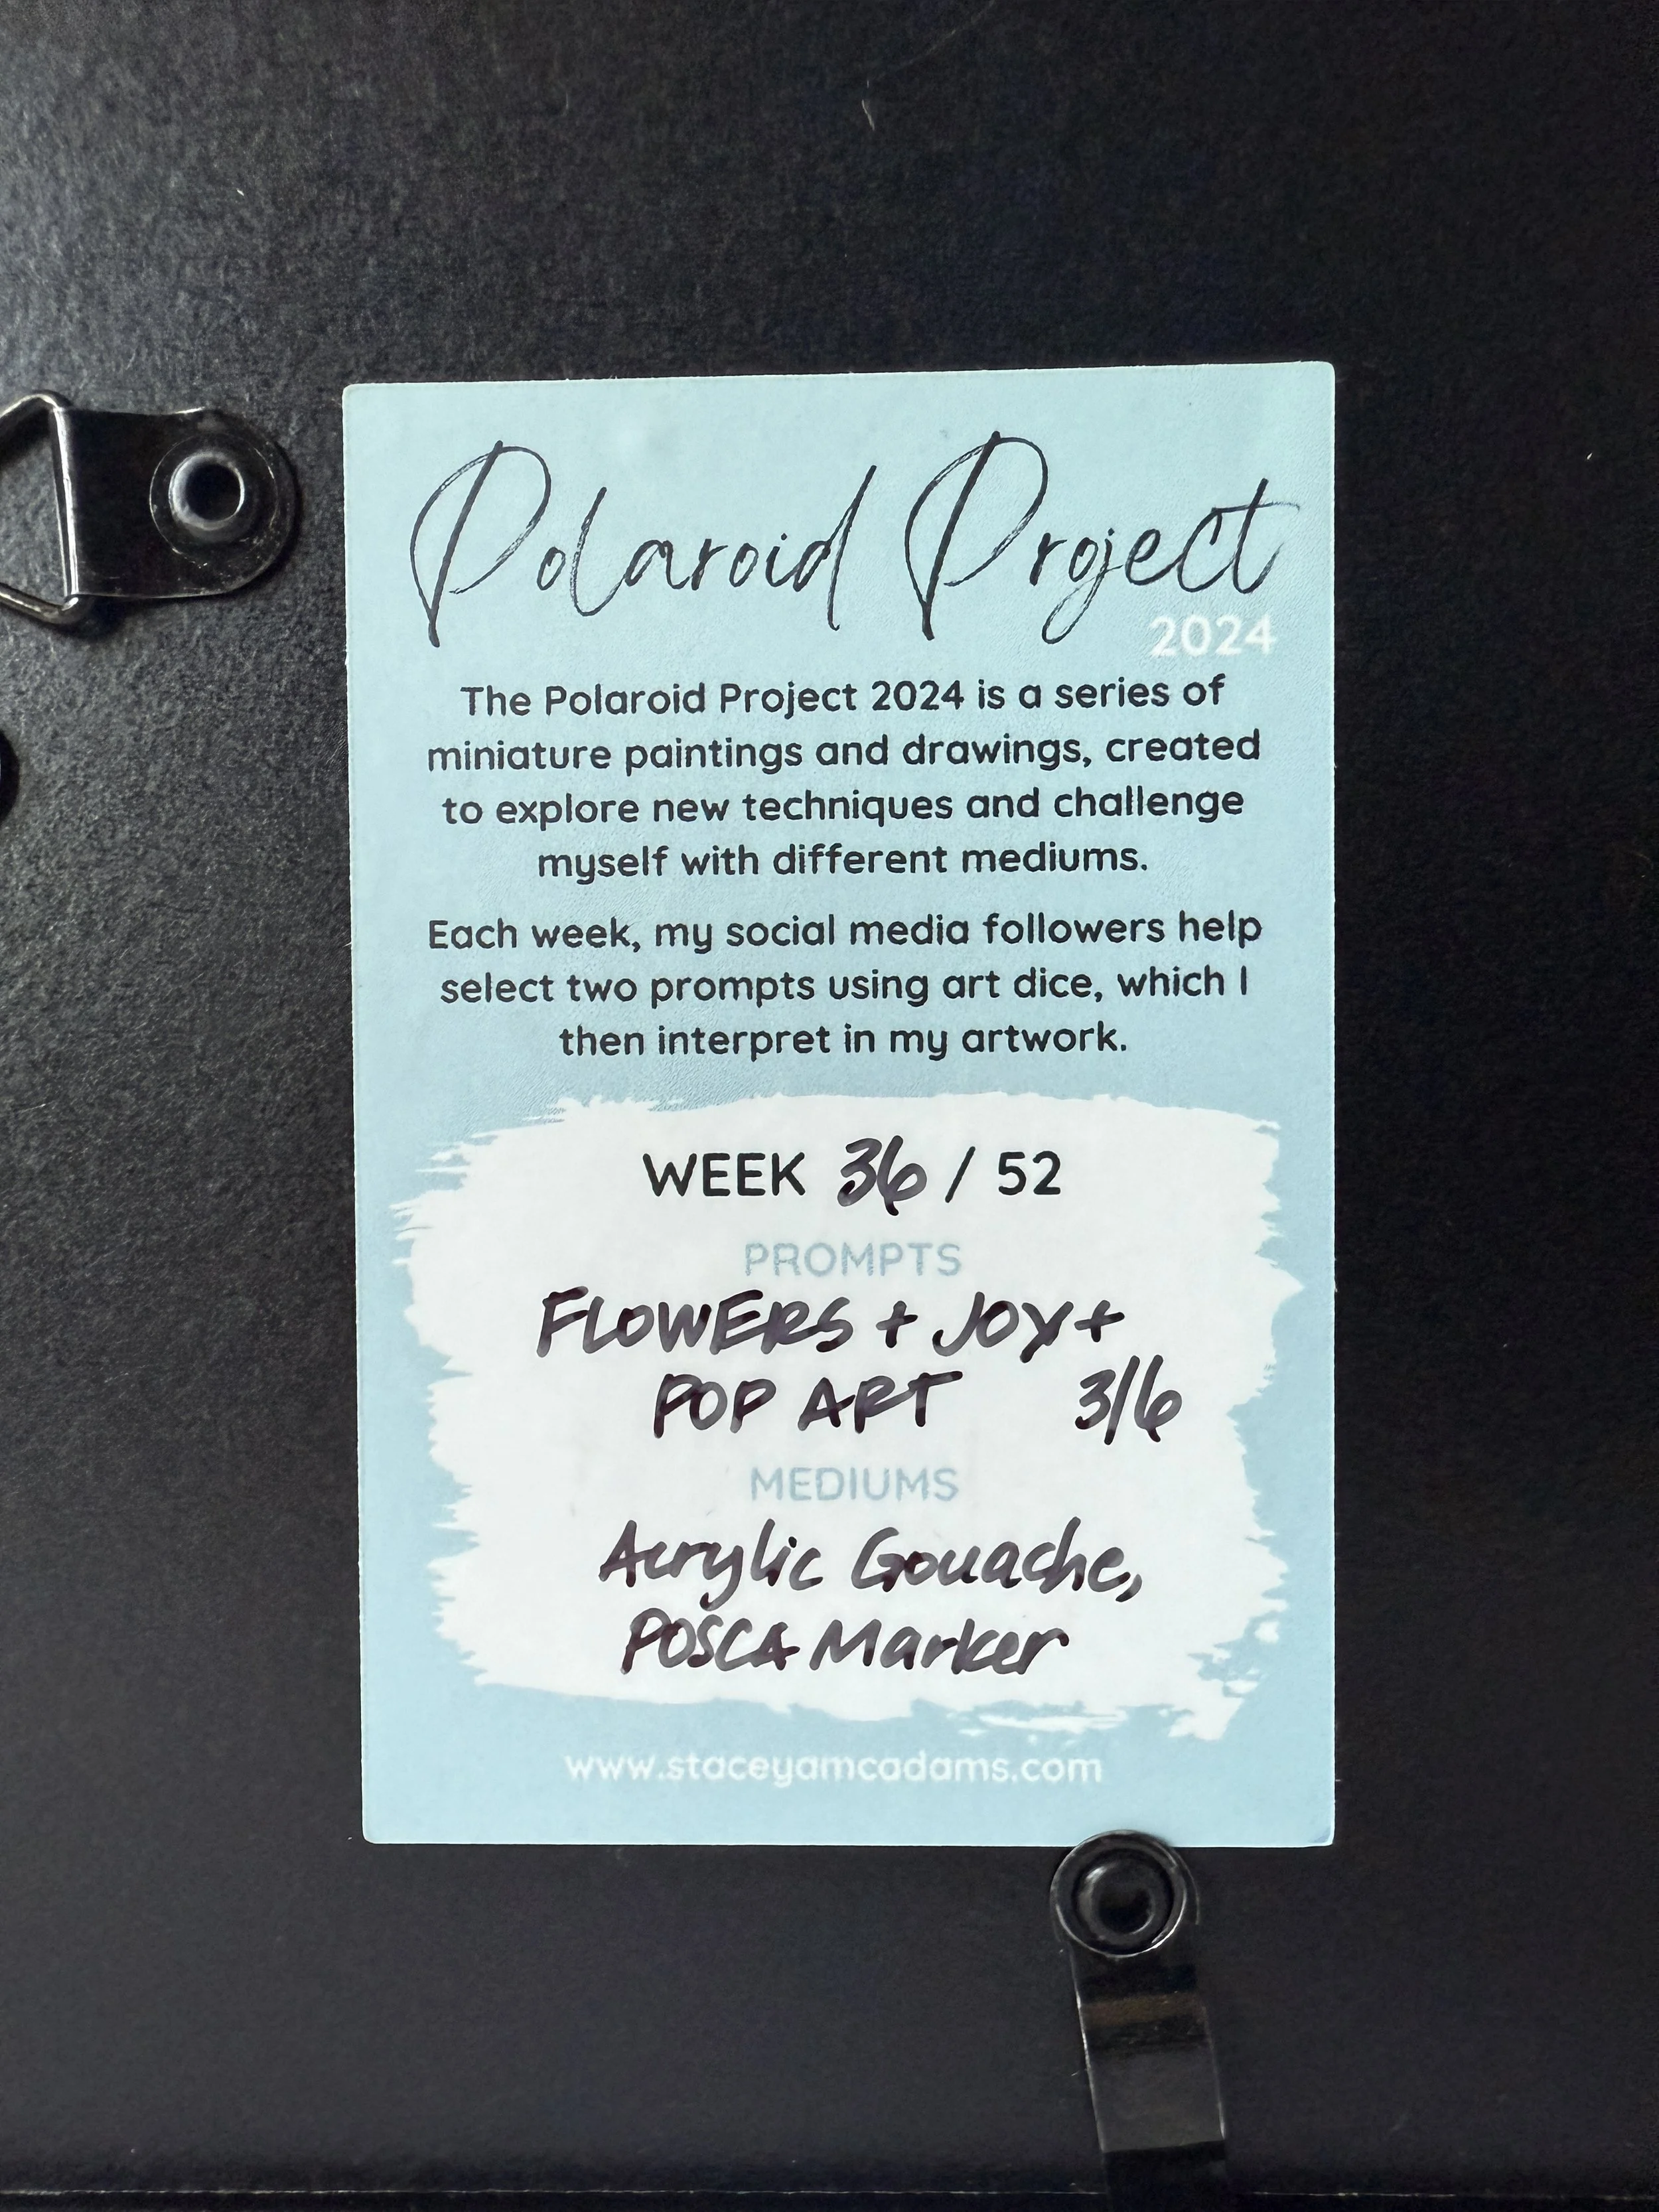 Polaroid Project
2024
The Polaroid Project 2024 is a series of
miniature paintings and drawings, created
to explore new techniques and challenge
myself with different mediums.
Each week, my social media followers help
select two prompts using art dice, which I
then interpret in my artwork.
WEEK 36 / 52
PROMPTS
FLOWERS + JOY +
POP ART 3/6
MEDIUMS
Acrylic Gouache,
POSCA Marker
www.staceyamcadams.com